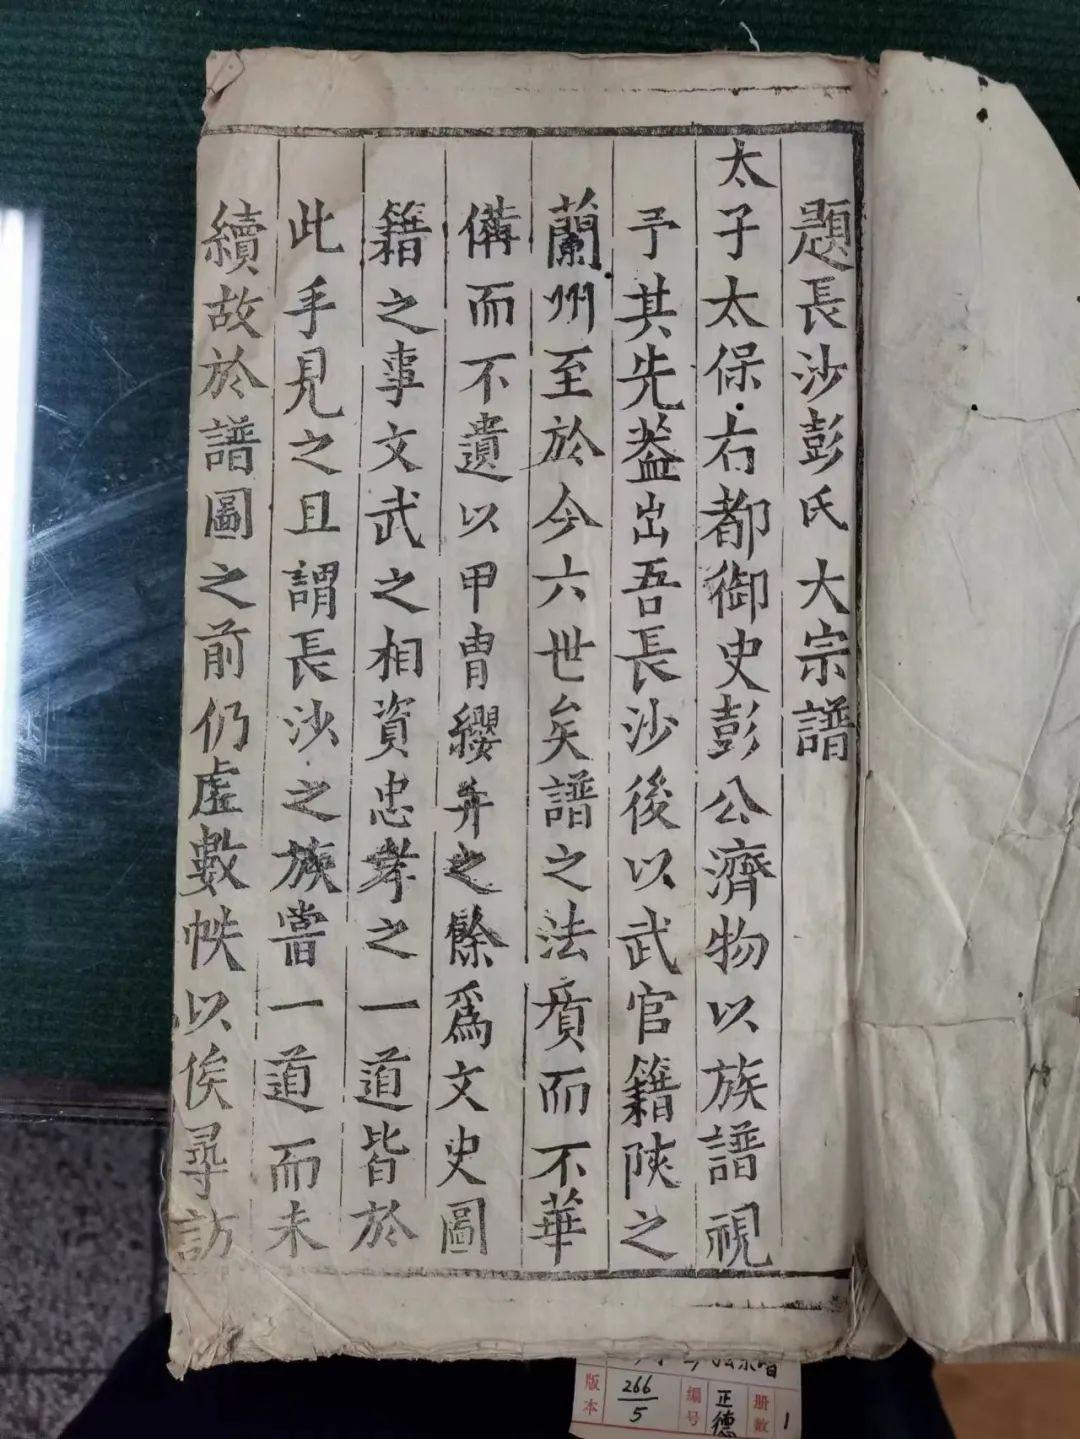 題長沙彭氏大宗譜
太子太保右都御史彭公濟物以族譜視
予其先葢出吾長沙後以武官籍陝之
蘭州至於今六世矣譜之法質而不華
備而不遺以甲冑纓弁之餘爲文史圖
籍之事文武之相資忠孝之一道皆於
此手見之且謂長沙之族嘗一道而未
續故於譜圖之前仍虛數帙以俟尋訪
版本
266/5
編号
正德
册数
1